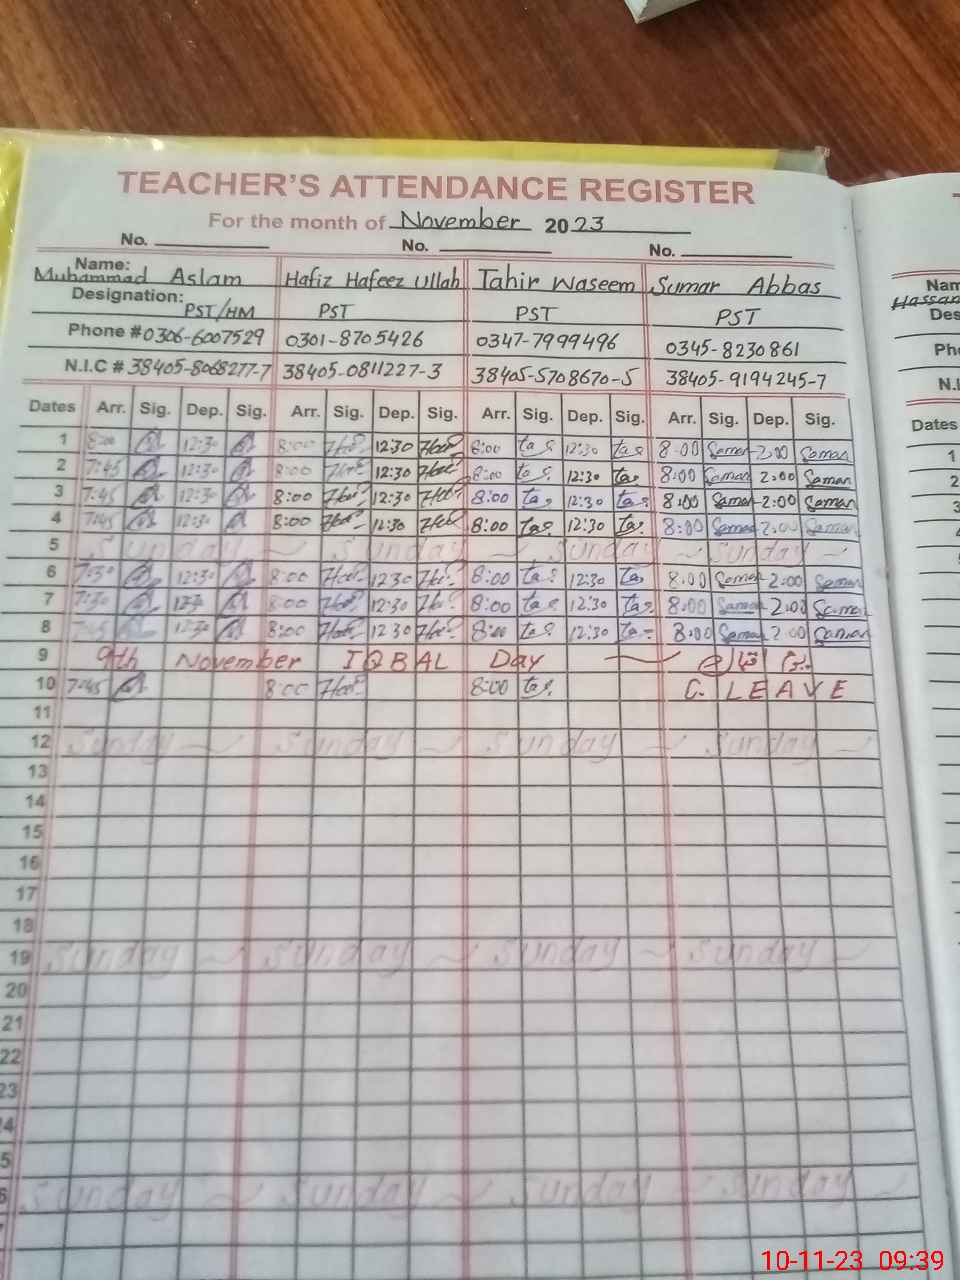 TEACHER'S ATTENDANCE REGISTER
For the month of November 2023
No. No. No.
Name: Muhammad Aslam Hafiz Hafeez Ullah Tahir Waseem Sumar Abbas
Designation: PST/HM PST PST PST
Phone # 0306-6007529 0301-8705426 0347-7999496 0345-8230861
N.I.C # 38405-8068277-7 38405-0811227-3 38405-5708670-5 38405-9194245-7
Dates Arr. Sig. Dep. Sig. Arr. Sig. Dep. Sig. Arr. Sig. Dep. Sig. Arr. Sig. Dep. Sig.
1 8:00 12:30 8:00 12:30 8:00 tas 12:30 tas 8:00 Samar 2:00 Samar
2 7:45 12:30 8:00 12:30 8:00 tas 12:30 tas 8:00 Samar 2:00 Samar
3 7:45 12:30 8:00 12:30 8:00 tas 12:30 tas 8:00 Samar 2:00 Samar
4 7:45 12:30 8:00 12:30 8:00 tas 12:30 tas 8:00 Samar 2:00 Samar
5 Sunday Sunday Sunday Sunday
6 7:30 12:30 8:00 12:30 8:00 tas 12:30 tas 8:00 Samar 2:00 Samar
7 7:30 12:30 8:00 12:30 8:00 tas 12:30 tas 8:00 Samar 2:00 Samar
8 7:45 12:30 8:00 12:30 8:00 tas 12:30 tas 8:00 Samar 2:00 Samar
9 9th November IQBAL Day یوم اقبال
10 7:45 8:00 8:00 tas C. LEAVE
11
12 Sunday Sunday Sunday Sunday
13
14
15
16
17
18
19 Sunday Sunday Sunday Sunday
20
21
22
23
4
5
6 Sunday Sunday Sunday Sunday
Nam
Hassan
Des
Pho
N.I
Dates
1
2
3
10-11-23 09:39